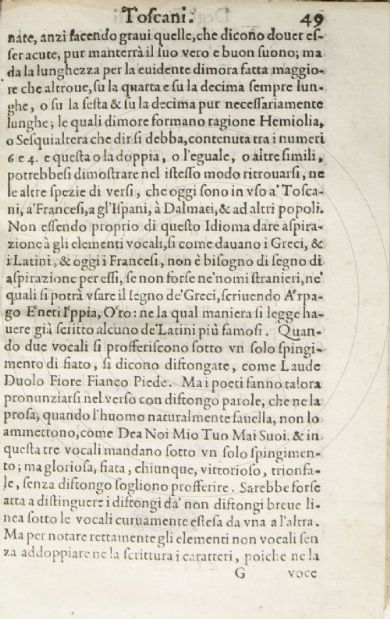 Toscani. 49
nate, anzi facendo graui quelle, che dicono douer es-
ser acute, pur manterrà il suo vero e buon suono; ma
da la lunghezza per la euidente dimora fatta maggio-
re che altroue, su la quarta e su la decima sempre lun-
ghe, o su la sesta & su la decima pur necessariamente
lunghe; le quali dimore formano ragione Hemiolia,
o Sesquialtera che dir si debba, contenuta tra i numeri
6 e 4. e questa o la doppia, o l'eguale, o altre simili,
potrebbesi dimostrare nel istesso modo ritrouarsi, ne
le altre spezie di versi, che oggi sono in vso a' Tosca-
ni, a' Francesi, a gl'Ispani, à Dalmati, & ad altri popoli.
Non essendo proprio di questo Idioma dare aspira-
zione à gli elementi vocali, si come dauano i Greci, &
i Latini, & oggi i Francesi, non è bisogno di segno di
aspirazione per essi, se non forse ne' nomi stranieri, ne'
quali si potrà vsare il segno de' Greci, scriuendo A'rpa-
go E'neti I'ppia, O'ro: ne la qual maniera si legge ha-
uere già scritto alcuno de' Latini più famosi. Quan-
do due vocali si profferiscono sotto vn solo spingi-
mento di fiato, si dicono diftongate, come Laude
Duolo Fiore Fianco Piede. Ma i poeti fanno talora
pronunziarsi nel verso con diftongo parole, che ne la
prosa, quando l'huomo naturalmente fauella, non lo
ammettono, come Dea Noi Mio Tuo Mai Suoi. & in
questa tre vocali mandano sotto vn solo spingimen-
to; ma gloriosa, fiata, chiunque, vittorioso, trionfa-
le, senza diftongo sogliono profferire. Sarebbe forse
atta a distinguere i diftongi da' non diftongi breue li-
nea sotto le vocali curuamente estesa da vna a l'altra.
Ma per notare rettamente gli elementi non vocali sen
za addoppiare ne la scrittura i caratteri, poiche ne la
G voce